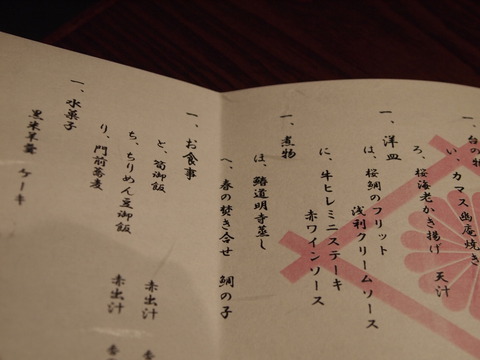 台の物
い、カマス幽庵焼き
ろ、桜海老かき揚げ 天汁
一、洋皿
は、桜鯛のフリット
浅利クリームソース
に、牛ヒレミニステーキ
赤ワインソース
一、煮物
ほ、鰆道明寺蒸し
へ、春の焚き合せ 鯛の子
一、お食事
と、筍御飯 赤出汁 香
ち、ちりめん豆御飯 赤出汁 香
り、門前蕎麦
一、水菓子
黒米羊羹 ケーキ